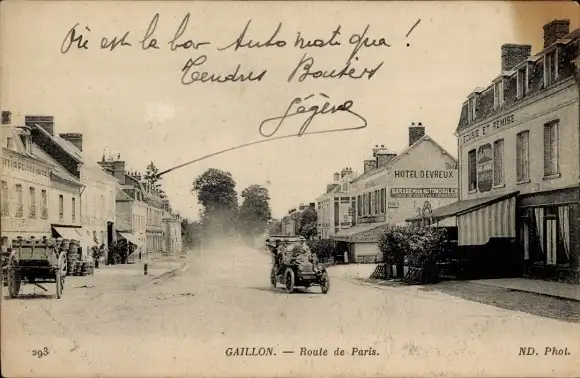 Où est la bar Automatique !
Tendres Baisers
ECURIE ET REMISE
HOTEL D'EVREUX
GARAGE POUR AUTOMOBILES
293
GAILLON. — Route de Paris.
ND. Phot.